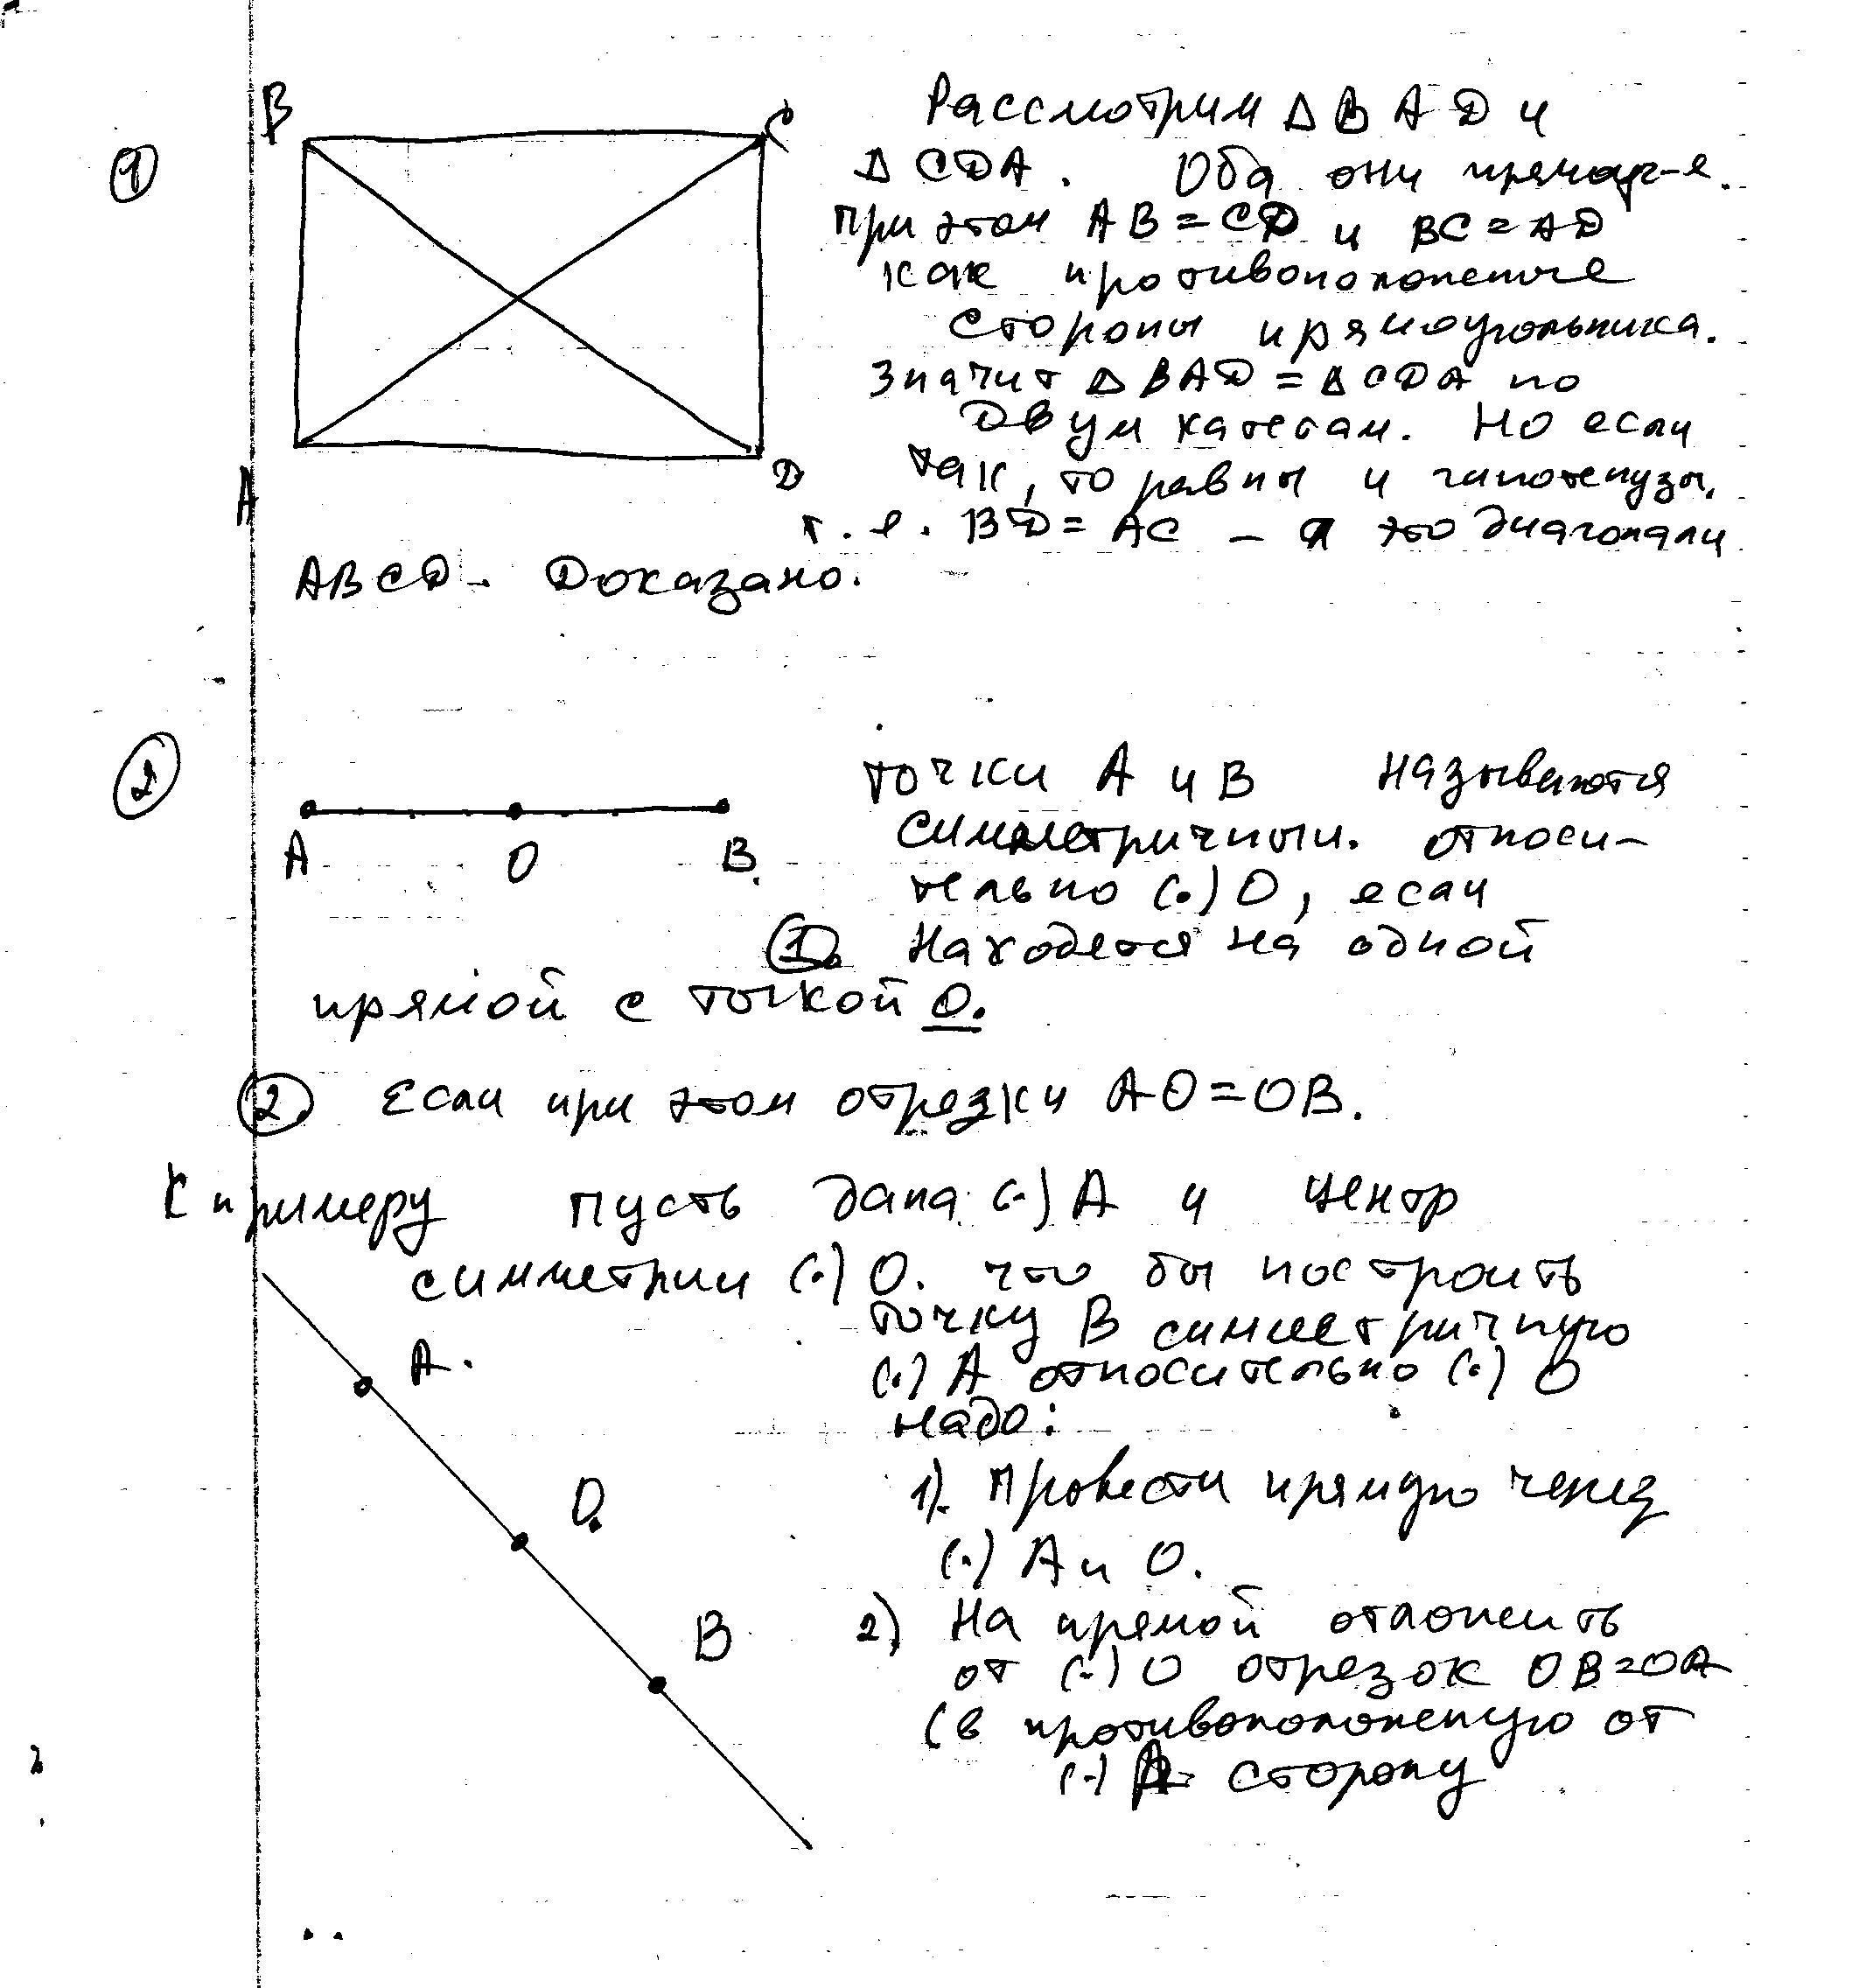 1
B
C
A
D
Рассмотрим Δ BAD и
Δ CDA. Оба они прямоуг-е.
При этом AB = CD и BC = AD
как противоположные
стороны прямоугольника.
Значит Δ BAD = Δ CDA по
двум катетам. Но если
так, то равны и гипотенузы.
т. е. BD = AC – а это диагонали
ABCD. Доказано.
2
A O B.
точки A и B называются
симметричными. относи-
тельно (.) O, если
1. Находятся на одной
прямой с точкой O.
2. Если при этом отрезки AO = OB.
К примеру пусть дана (.) A и центр
симметрии (.) O. что бы построить
точку B симметричную
(.) A относительно (.) O
надо:
1). Провести прямую через
(.) A и O.
2) На прямой отложить
от (.) O отрезок OB = OA
(в противоположную от
(.) A сторону
A.
O.
B